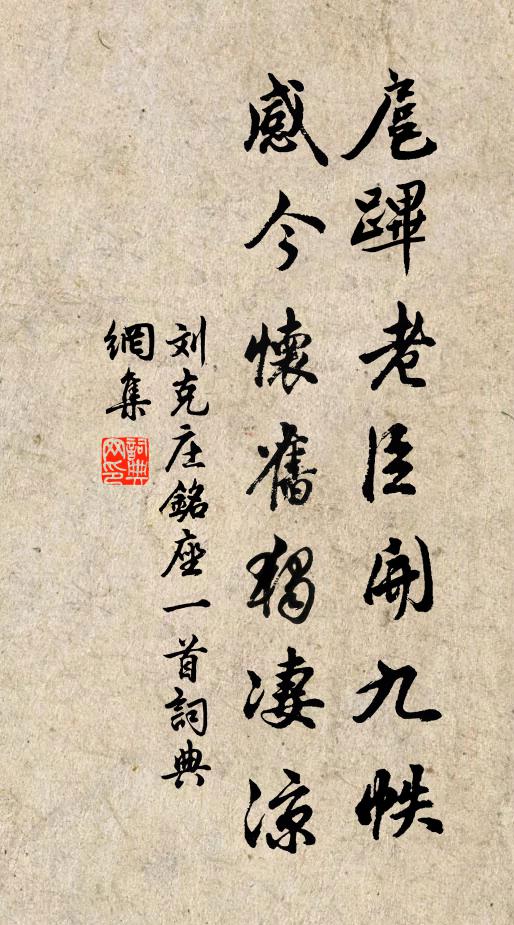 扈蹕老臣開九帙
感今懷舊獨凄涼
刘克庄銘座一首詞典
網集
詞典网印